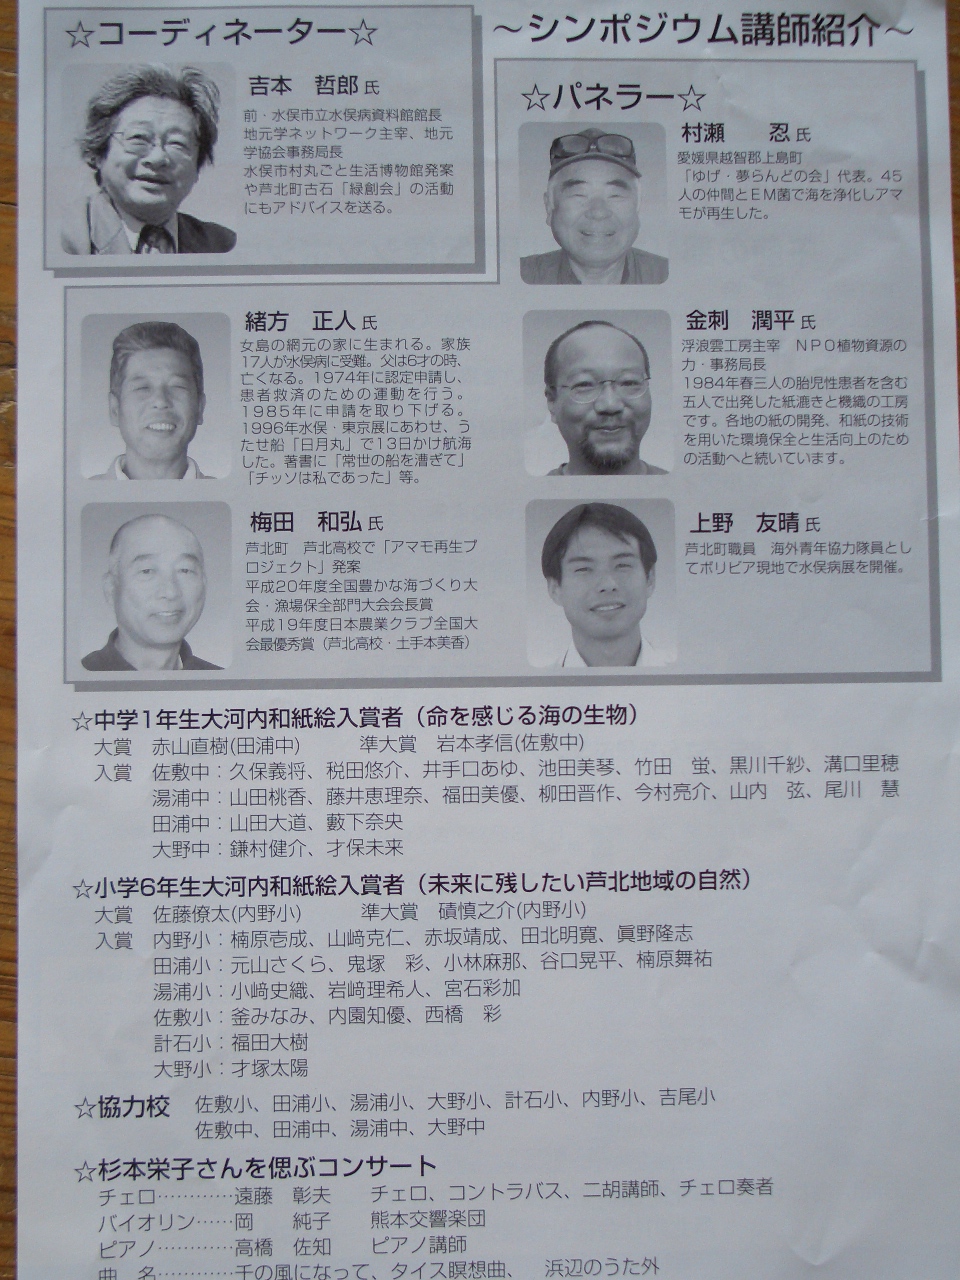 ☆コーディネーター☆
吉本 哲郎 氏
前・水俣市立水俣病資料館館長
地元学ネットワーク主宰、地元
学協会事務局長
水俣市村丸ごと生活博物館発案
や芦北町古石「緑創会」の活動
にもアドバイスを送る。
～シンポジウム講師紹介～
☆パネラー☆
村瀬 忍 氏
愛媛県越智郡上島町
「ゆげ・夢らんどの会」代表。45
人の仲間とEM菌で海を浄化しアマ
モが再生した。
緒方 正人 氏
女島の網元の家に生まれる。家族
17人が水俣病に受難。父は6才の時、
亡くなる。1974年に認定申請し、
患者救済のための運動を行う。
1985年に申請を取り下げる。
1996年水俣・東京展にあわせ、う
たせ船「日月丸」で13日かけ航海
した。著書に「常世の船を漕ぎて」
「チッソは私であった」等。
金刺 潤平 氏
浮浪雲工房主宰 NPO植物資源の
力・事務局長
1984年春三人の胎児性患者を含む
五人で出発した紙漉きと機織の工房
です。各地の紙の開発、和紙の技術
を用いた環境保全と生活向上のため
の活動へと続いています。
梅田 和弘 氏
芦北町 芦北高校で「アマモ再生プ
ロジェクト」発案
平成20年度全国豊かな海づくり大
会・漁場保全部門大会会長賞
平成19年度日本農業クラブ全国大
会最優秀賞（芦北高校・土手本美香）
上野 友晴 氏
芦北町職員 海外青年協力隊員とし
てボリビア現地で水俣病展を開催。
☆中学1年生大河内和紙絵入賞者（命を感じる海の生物）
大賞 赤山直樹(田浦中) 準大賞 岩本孝信(佐敷中)
入賞 佐敷中：久保義将、税田悠介、井手口あゆ、池田美琴、竹田 蛍、黒川千紗、溝口里穂
湯浦中：山田桃香、藤井恵理奈、福田美優、柳田晋作、今村亮介、山内 弦、尾川 慧
田浦中：山田大道、藪下奈央
大野中：鎌村健介、才保未来
☆小学6年生大河内和紙絵入賞者（未来に残したい芦北地域の自然）
大賞 佐藤僚太(内野小) 準大賞 磧慎之介(内野小)
入賞 内野小：楠原壱成、山﨑克仁、赤坂靖成、田北明寛、眞野隆志
田浦小：元山さくら、鬼塚 彩、小林麻那、谷口晃平、楠原舞祐
湯浦小：小﨑史織、岩﨑理希人、宮石彩加
佐敷小：釜みなみ、内園知優、西橋 彩
計石小：福田大樹
大野小：才塚太陽
☆協力校 佐敷小、田浦小、湯浦小、大野小、計石小、内野小、吉尾小
佐敷中、田浦中、湯浦中、大野中
☆杉本栄子さんを偲ぶコンサート
チェロ…………遠藤 彰夫 チェロ、コントラバス、二胡講師、チェロ奏者
バイオリン……岡 純子 熊本交響楽団
ピアノ…………高橋 佐知 ピアノ講師
曲 名…………千の風になって、タイス瞑想曲、 浜辺のうた外